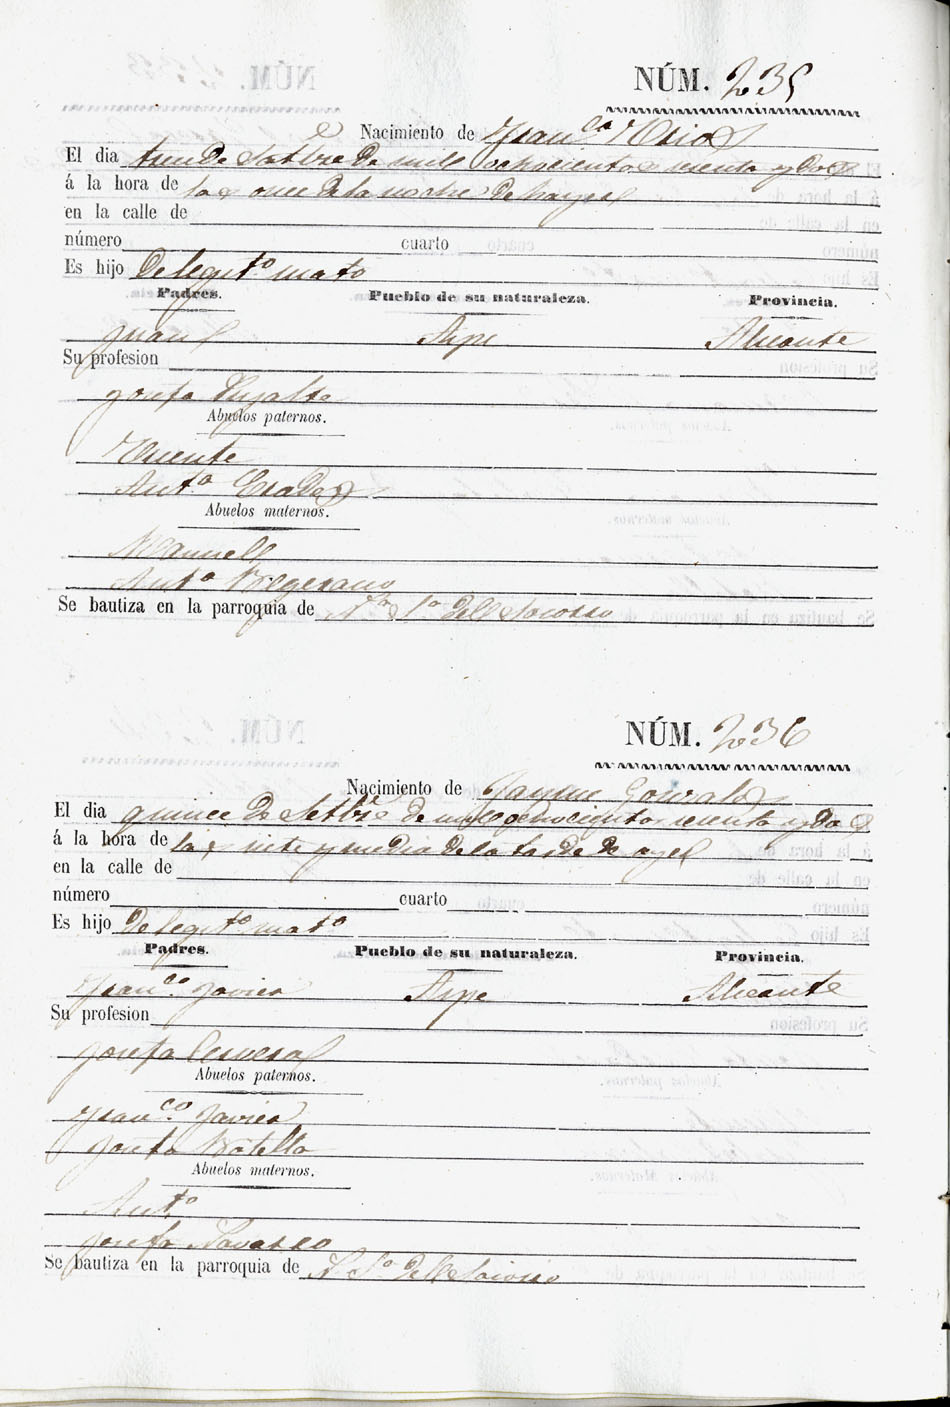 NÚM. 235
Nacimiento de Fran.ca
El dia de Setbre de mill ochocientos y dos
á la hora de las once de la noche de
en la calle de
número cuarto
Es hijo de legit.o mato
Padres. Pueblo de su naturaleza. Provincia.
Juan Aspe Alicante
Su profesion
Josefa
Abuelos paternos.
Vicente
Ant.a
Abuelos maternos.
Manuel
Ant.a
Se bautiza en la parroquia de N.ra S.a del Socorro
NÚM. 236
Nacimiento de
El dia quince de Setbre de mil ochocientos y dos
á la hora de las siete y media de la tarde de ayer
en la calle de
número cuarto
Es hijo de legit.o mat.o
Padres. Pueblo de su naturaleza. Provincia.
Fran.co Javier Aspe Alicante
Su profesion
Josefa
Abuelos paternos.
Fran.co Javier
Josefa Botella
Abuelos maternos.
Ant.o
Josefa Navarro
Se bautiza en la parroquia de N. S.a del Socorro